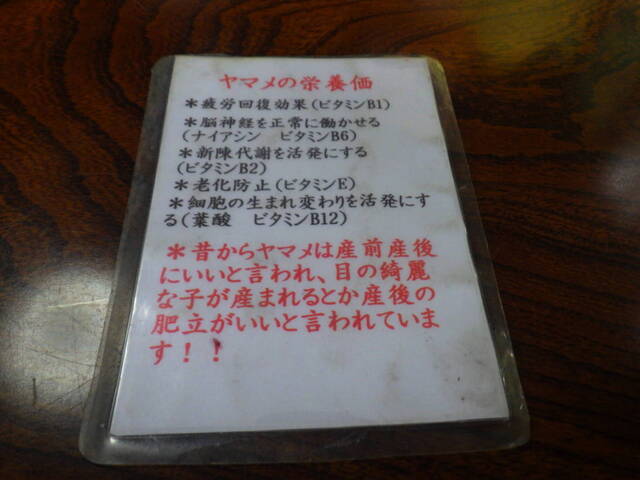 ヤマメの栄養価
＊疲労回復効果(ビタミンB1)
＊脳神経を正常に働かせる
(ナイアシン　ビタミンB6)
＊新陳代謝を活発にする
(ビタミンB2)
＊老化防止(ビタミンE)
＊細胞の生まれ変わりを活発にす
る(葉酸　ビタミンB12)
＊昔からヤマメは産前産後
にいいと言われ、目の綺麗
な子が産まれるとか産後の
肥立がいいと言われていま
す！！